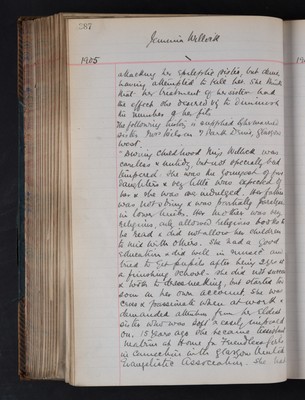 287
Jemima Willock
1905
attacking her epileptic sister, but denies
having attempted to kill her. She thinks
that her treatment of her sister had
the effect she desired by it to diminish
the number of her fits.
The following history is supplied by her married
sister Mrs 7 Park Drive, Glasgow
West.
"During childhood Miss Willock was
careless & untidy, but not especially bad
tempered. She was the youngest of five
daughters & very little was expected of
her & she was an indulged. Her father
was and was partially paralysed
in lower limbs. Her mother was very
religious, only allowed religious books to
be read & did not allow her children
to mix with others. She had a good
education & did well in music and
tried to get pupils after being 2 yrs at
a finishing school. She did not succeed
& took to dressmaking, but started too
soon on her own account. She was
cross & passionate when at work &
demanded attention from her eldest
sister who was soft & easily imposed
on. 15 years ago she became assistant
matron at Home for Friendless girls
in connection with Glasgow United
Evangelistic Association. She had